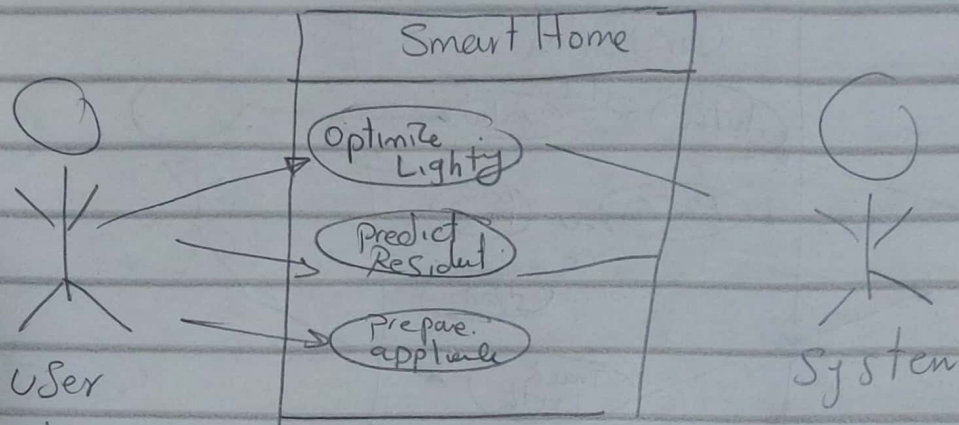 Smart Home
Optimize
Lighty
Predict
Resident
Prepare
user
System